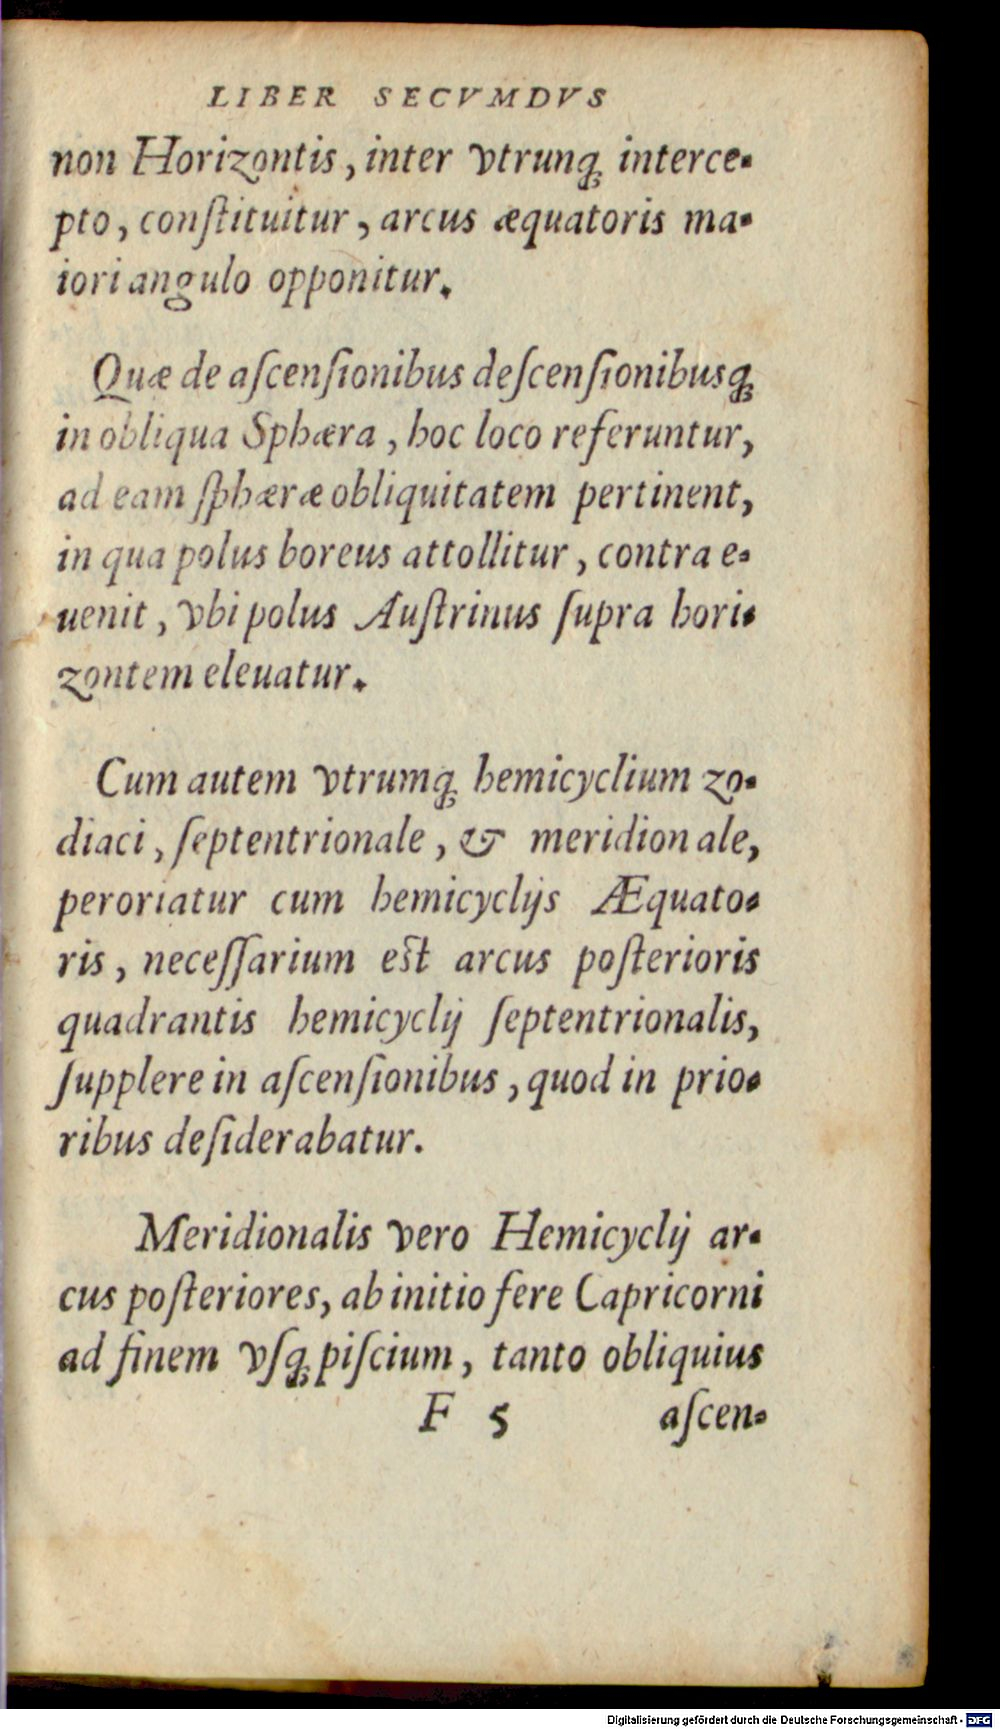 LIBER SECVMDVS
non Horizontis, inter vtrunq; interce-
pto, conſtituitur, arcus æquatoris ma-
iori angulo opponitur.
Quæ de aſcenſionibus deſcenſionibusq;
in obliqua Sphæra, hoc loco referuntur,
ad eam ſphæræ obliquitatem pertinent,
in qua polus boreus attollitur, contra e-
uenit, vbi polus Auſtrinus ſupra hori-
zontem eleuatur.
Cum autem vtrumq; hemicyclium zo-
diaci, ſeptentrionale, & meridionale,
peroriatur cum hemicyclijs Æquato-
ris, neceſſarium eſt arcus poſterioris
quadrantis hemicyclij ſeptentrionalis,
ſupplere in aſcenſionibus, quod in prio-
ribus deſiderabatur.
Meridionalis vero Hemicyclij ar-
cus poſteriores, ab initio fere Capricorni
ad finem vſq; piſcium, tanto obliquius
F 5 aſcen-
Digitalisierung gefördert durch die Deutsche Forschungsgemeinschaft - DFG